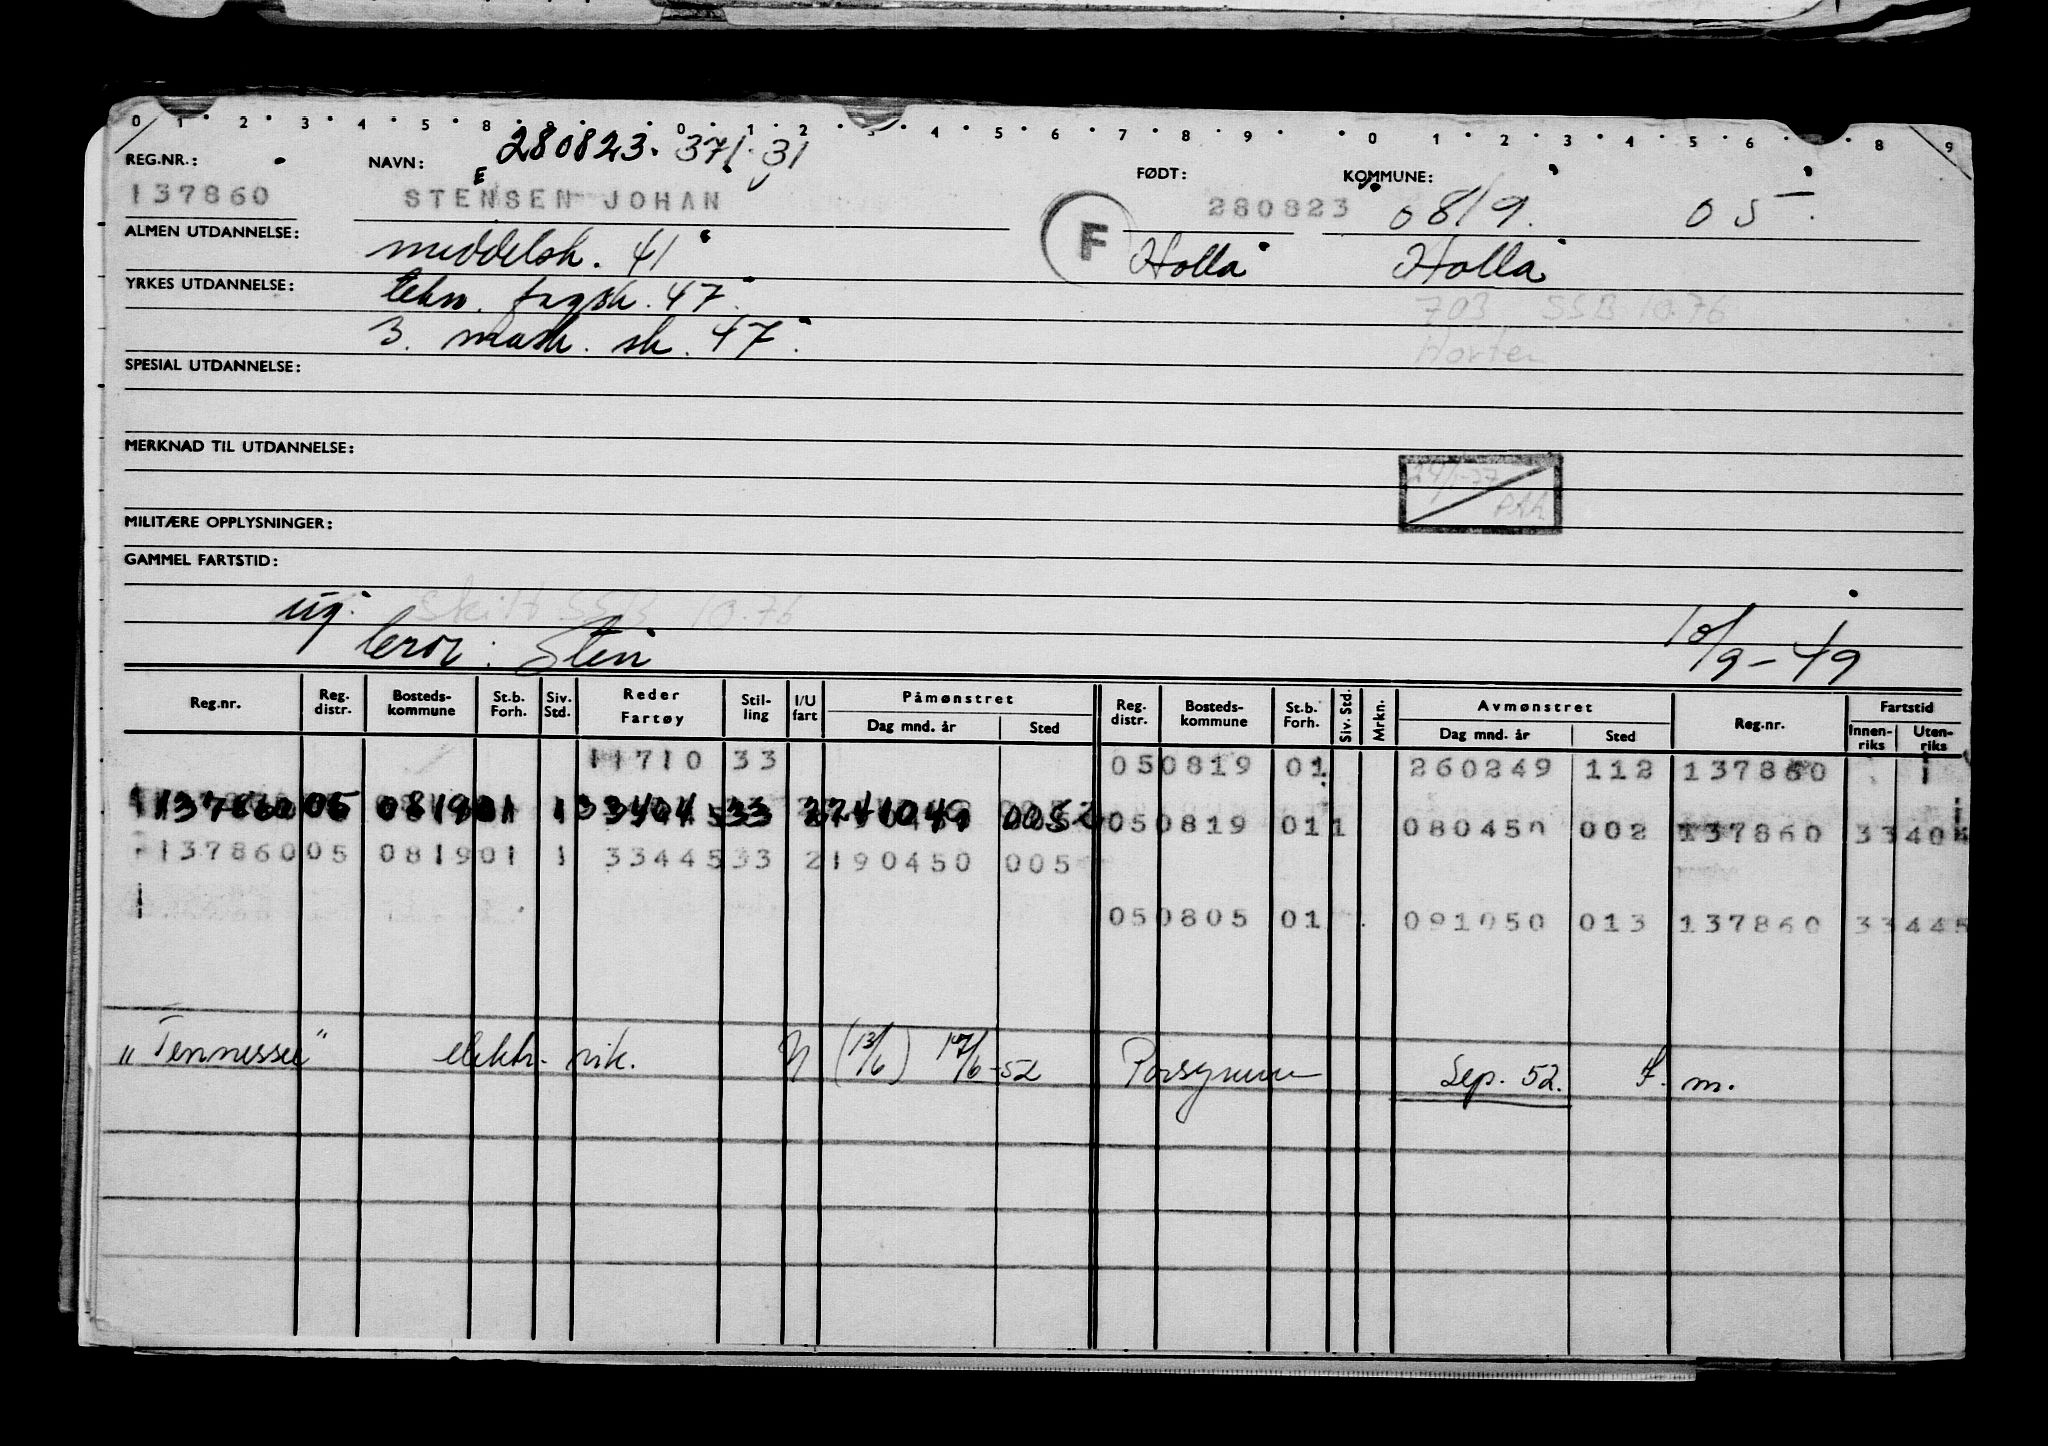 0 1 2 3 4 5 8 9 0 1 2 3 4 5 6 7 8 9 0 1 2 3 4 5 6 7 8 9
280823. 371.31
REG.NR.: NAVN: FØDT: KOMMUNE:
E
137860 STENSEN JOHAN 280823 0819. 05.
F
ALMEN UTDANNELSE: middelsk. 41 Holla Holla
YRKES UTDANNELSE: tekn. fagsk. 47
703 SSB 10.76
3. mask. sk. 47. Horten
SPESIAL UTDANNELSE:
MERKNAD TIL UTDANNELSE:
MILITÆRE OPPLYSNINGER:
GAMMEL FARTSTID:
ug. Skilt SSB 10.76
Stein 10/9-49
Reg.nr. Reg. distr. Bosteds- kommune St.b. Forh. Siv. Std. Reder Fartøy Stil- ling I/U fart Påmønstret Dag mnd. år Sted Reg. distr. Bosteds- kommune St.b. Forh. Siv. Std. Mrkn. Avmønstret Dag mnd. år Sted Reg.nr. Fartstid Innen- riks Uten- riks
11710 33 05 0819 01 260249 112 137860
137860 05 0819 01 1 33404 33 2 241049 005
05 0819 01 1 080450 002 137860 33404
137860 05 0819 01 1 33445 33 2 190450 005
05 0805 01 091050 013 137860 33445
"Tennessee" elektr. rik. N (13/6) 17/6-52 Porsgrunn Sep. 52. f. m.